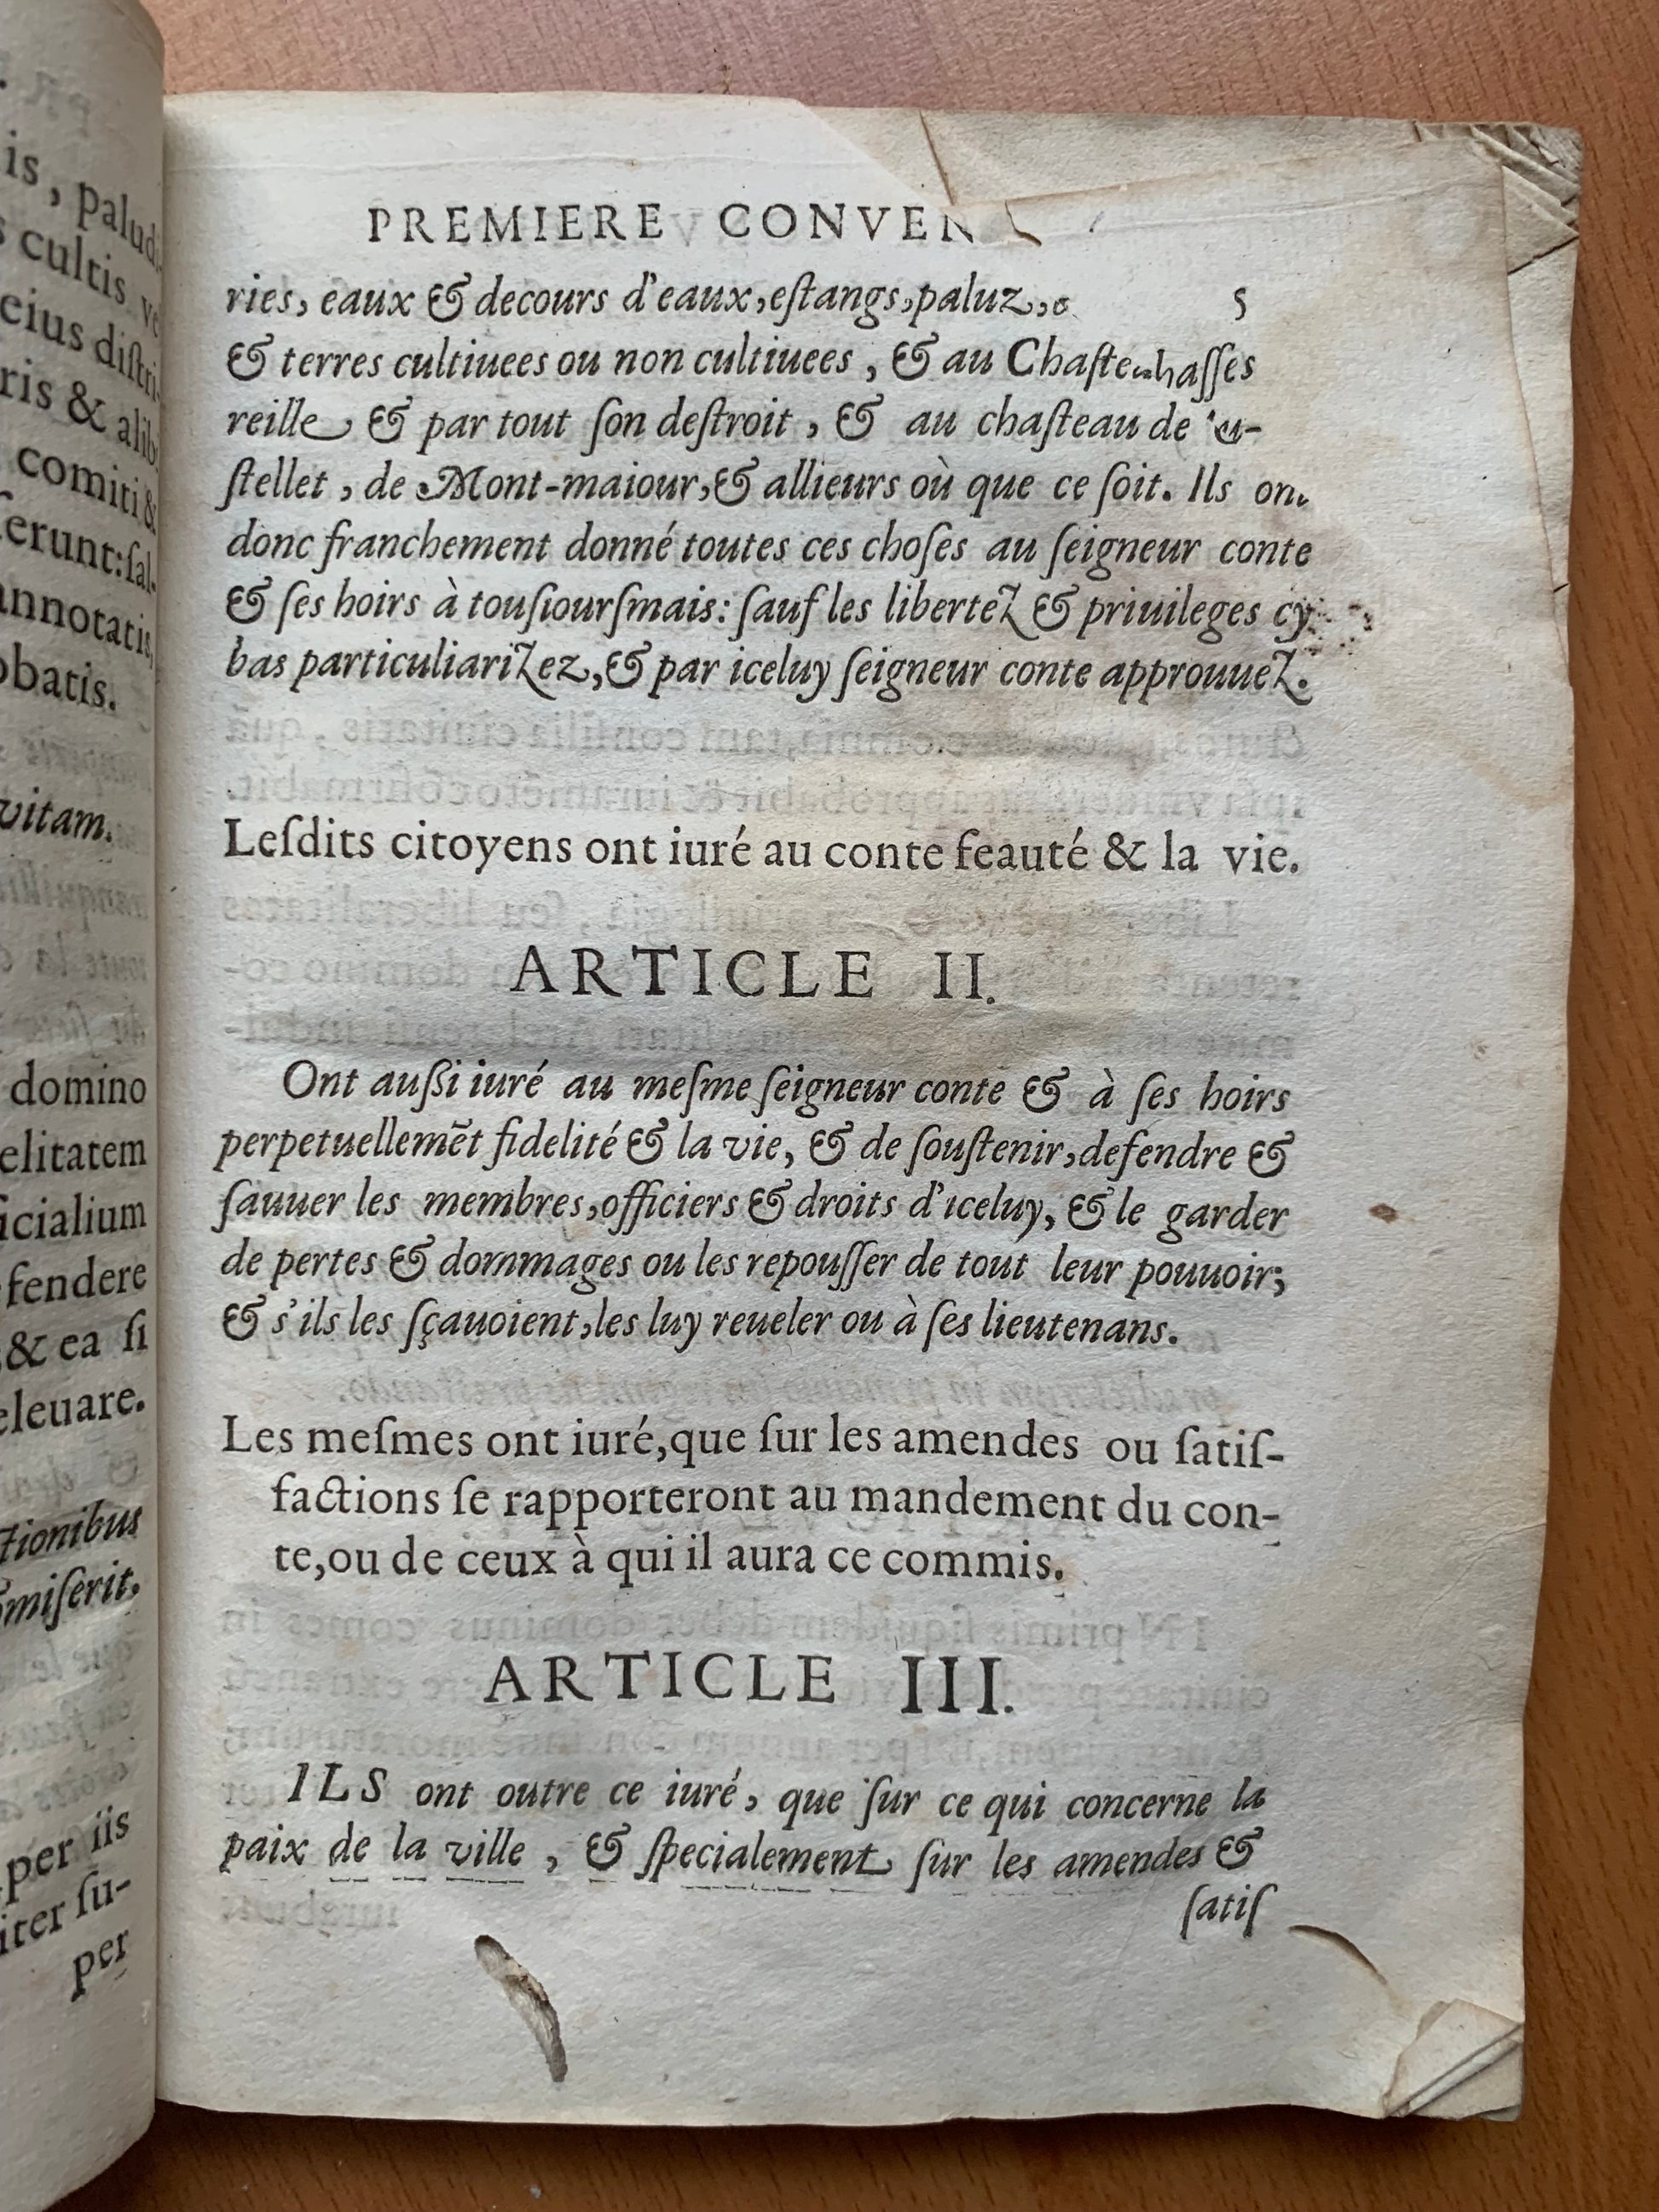 is, palud
cultis ve
eius distri
ris & alib
comiti &
ferunt:sal-
annotatis,
obatis.
vitam.
domino
elitatem
icialium
fendere
& ea si
eleuare.
ctionibus
miserit.
per iis
iter su-
per
PREMIERE CONVEN
ries, eaux & decours d'eaux, estangs, paluz,
5
& terres cultiuees ou non cultiuees, & au hasses
reille & par tout son destroit, & au chasteau de
stellet, de Mont-maiour, & allieurs où que ce soit. Ils ont
donc franchement donné toutes ces choses au seigneur conte
& ses hoirs à tousioursmais: sauf les libertez & priuileges cy
bas particuliarizez, & par iceluy seigneur conte approuuez.
Lesdits citoyens ont iuré au conte feauté & la vie.
ARTICLE II.
Ont aussi iuré au mesme seigneur conte & à ses hoirs
perpetuellemēt fidelité & la vie, & de soustenir, defendre &
sauuer les membres, officiers & droits d'iceluy, & le garder
de pertes & dommages ou les repousser de tout leur pouuoir;
& s'ils les sçauoient, les luy reueler ou à ses lieutenans.
Les mesmes ont iuré, que sur les amendes ou satis-
factions se rapporteront au mandement du con-
te, ou de ceux à qui il aura ce commis.
ARTICLE III.
ILS ont outre ce iuré, que sur ce qui concerne la
paix de la ville, & specialement sur les amendes &
satis